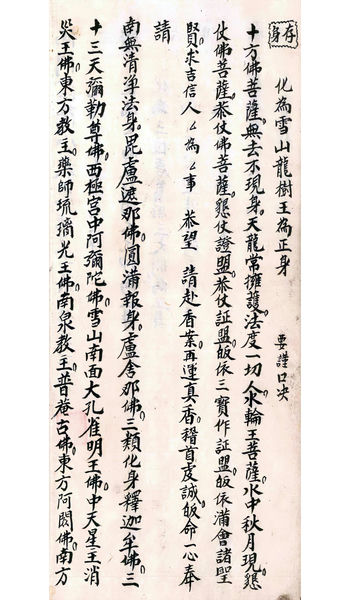 存身
化為雪山龍樹王為正身　要謹口决
十方佛菩薩無去不現身天龍常擁護法度一切人水輪王菩薩水中秋月現懇
仗佛菩薩恭仗佛菩薩懇仗證盟恭仗証盟皈依三寶作証盟皈依滿會諸聖
賢求吉信人厶為厶事　恭望　請赴香筵再運真香稽首虔誠皈命一心奉
請
南無清淨法身毘盧遮那佛圓滿報身盧舍那佛三類化身釋迦至佛三
十三天彌勒尊佛西極宮中阿彌陀佛雪山南面大孔雀明王佛中天星主消
災王佛東方教主藥師琉璃光王佛南泉教主普菴古佛東方阿閦佛南方